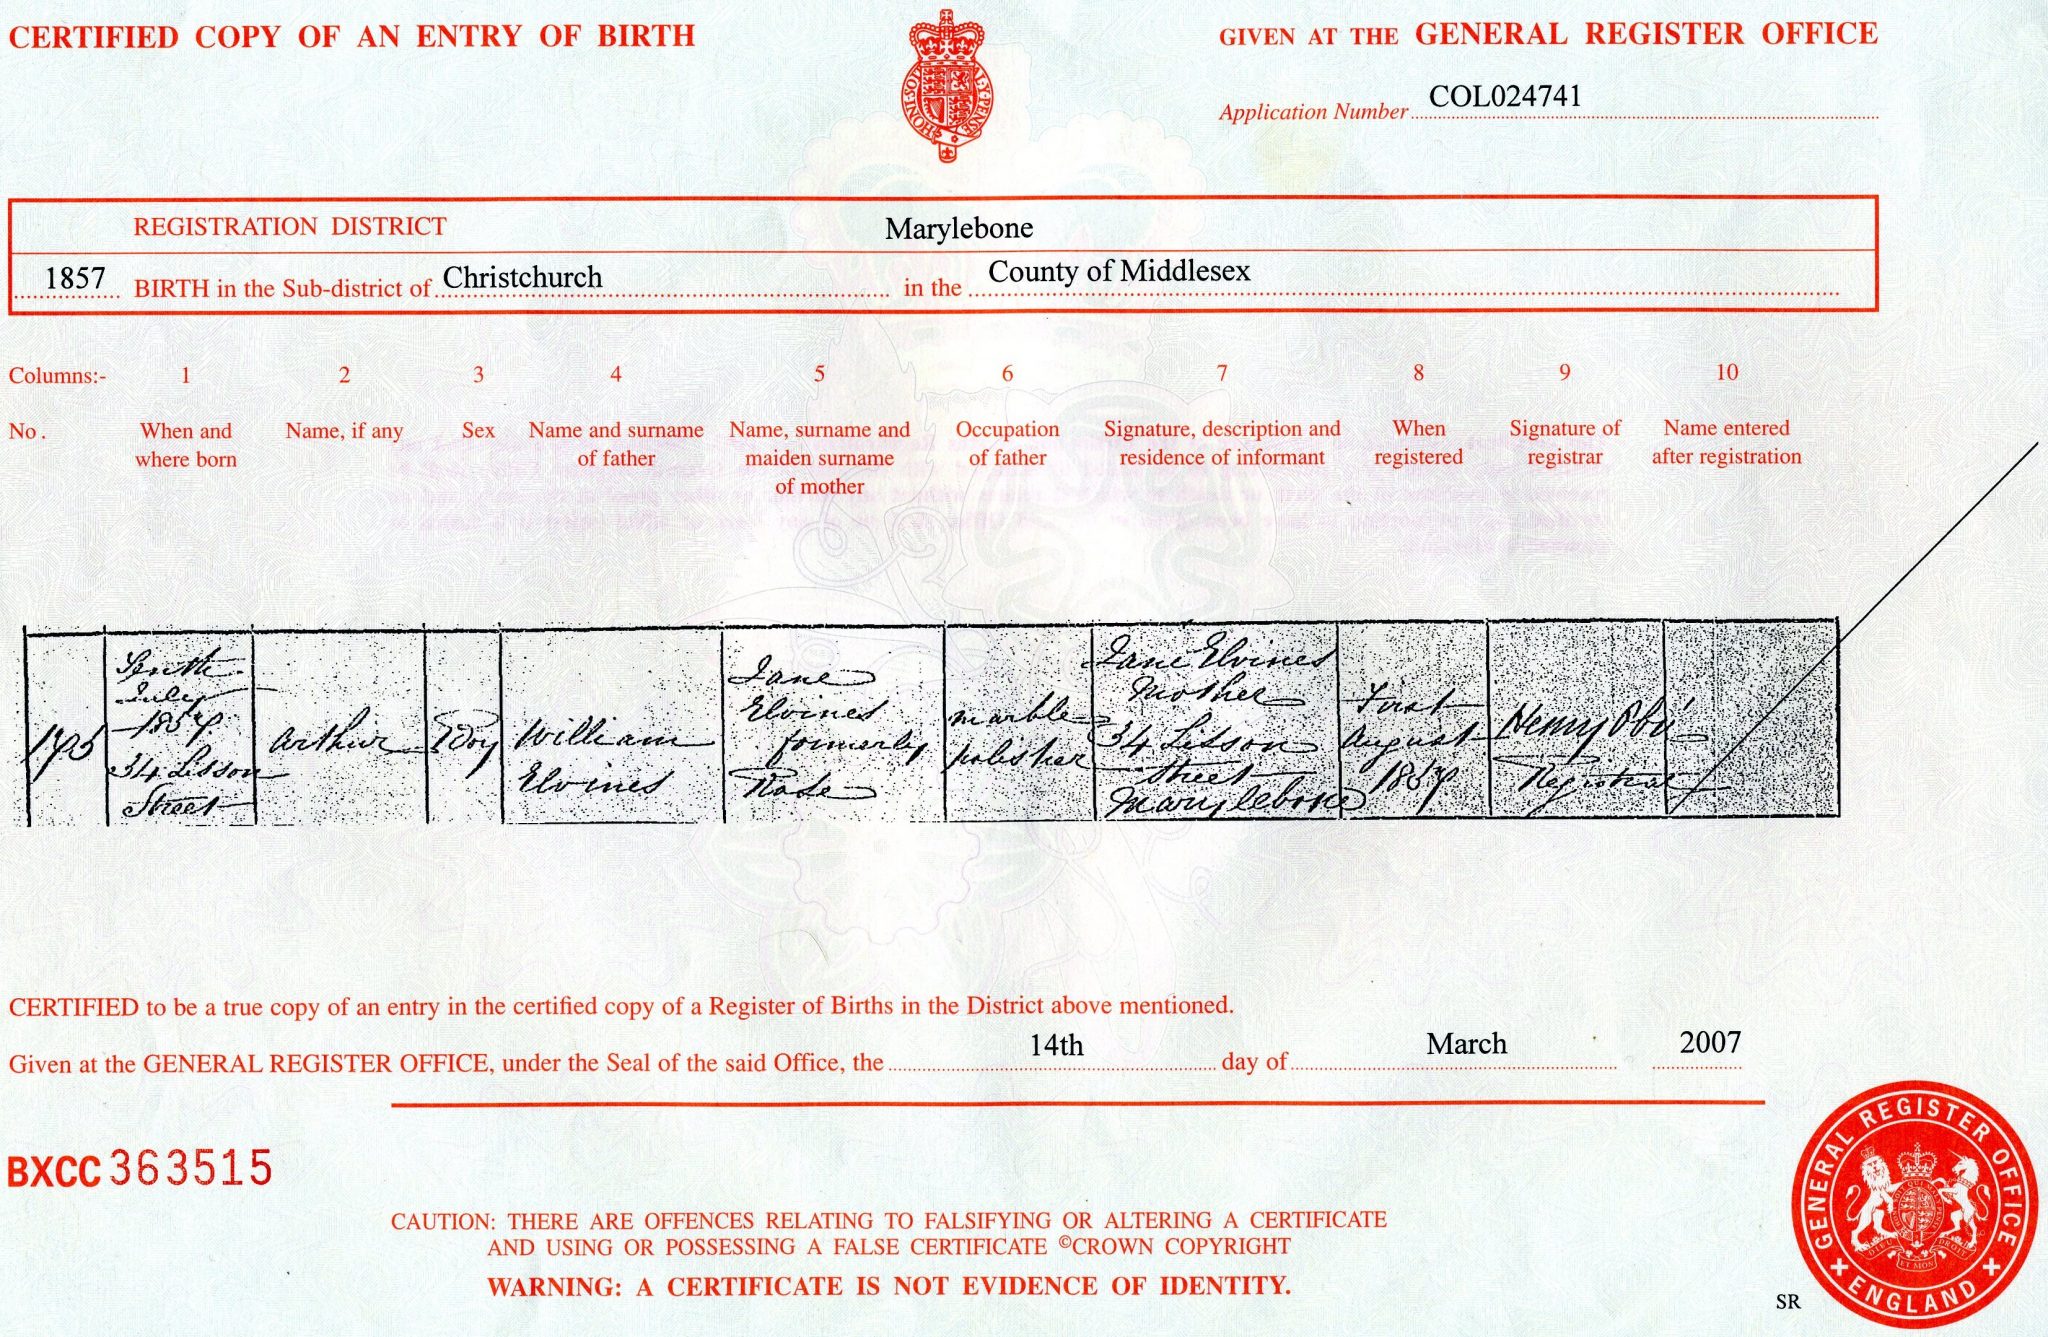 CERTIFIED COPY OF AN ENTRY OF BIRTH
GIVEN AT THE GENERAL REGISTER OFFICE
Application Number COL024741
HONI SOIT QUI MAL Y PENSE
REGISTRATION DISTRICT Marylebone
1857 BIRTH in the Sub-district of Christchurch in the County of Middlesex
Columns:- 1 2 3 4 5 6 7 8 9 10
No. When and where born
Name, if any
Sex
Name and surname of father
Name, surname and maiden surname of mother
Occupation of father
Signature, description and residence of informant
When registered
Signature of registrar
Name entered after registration
195
Tenth
July
1857
34 Lisson
Street
Arthur
Boy
William
Elvines
Jane
Elvines
formerly
marble
polisher
Jane Elvines
Mother
34 Lisson
Street
Marylebone
First
August
1857
Henry
Registrar
CERTIFIED to be a true copy of an entry in the certified copy of a Register of Births in the District above mentioned.
Given at the GENERAL REGISTER OFFICE, under the Seal of the said Office, the 14th day of March 2007
BXCC 363515
CAUTION: THERE ARE OFFENCES RELATING TO FALSIFYING OR ALTERING A CERTIFICATE
AND USING OR POSSESSING A FALSE CERTIFICATE ©CROWN COPYRIGHT
WARNING: A CERTIFICATE IS NOT EVIDENCE OF IDENTITY.
SR
GENERAL REGISTER OFFICE
ENGLAND